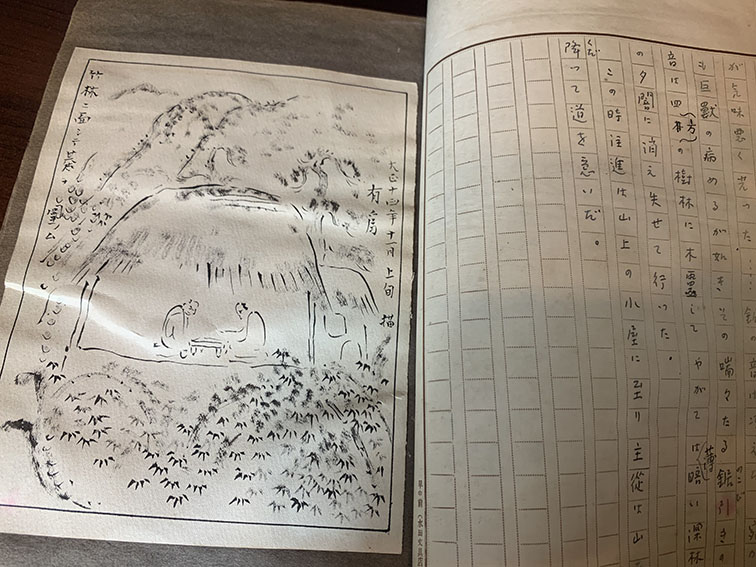 が気味悪く光った……鋸の音は
も巨獸の病めるが如きその喘々たる鋸引きの
音は四方の樹林に木靈して やがて薄暗い深林
の夕闇に消え失せて行った。
この時注進は山上の小屋に至り主從は山
降って道を急いだ。
大正十四年十一月上旬 描
竹林ニ面シテ碁ヲ圍ム